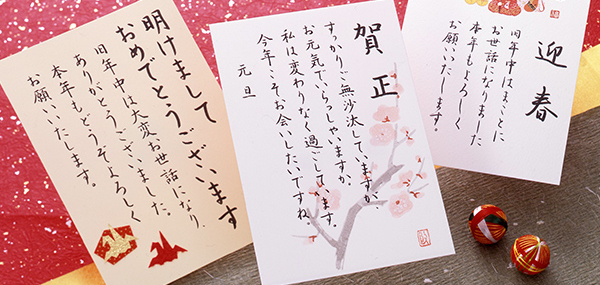 明けまして
おめでとうございます
旧年中は大変お世話になり
ありがとうございました。
本年もどうぞよろしく
お願いいたします。
賀正
すっかりご無沙汰していますが、
お元気でいらっしゃいますか。
私は変わりなく過ごしています。
今年こそお会いしたいですね。
元旦
迎春
旧年中はまことに
お世話になりました
本年もよろしく
お願いいたします。